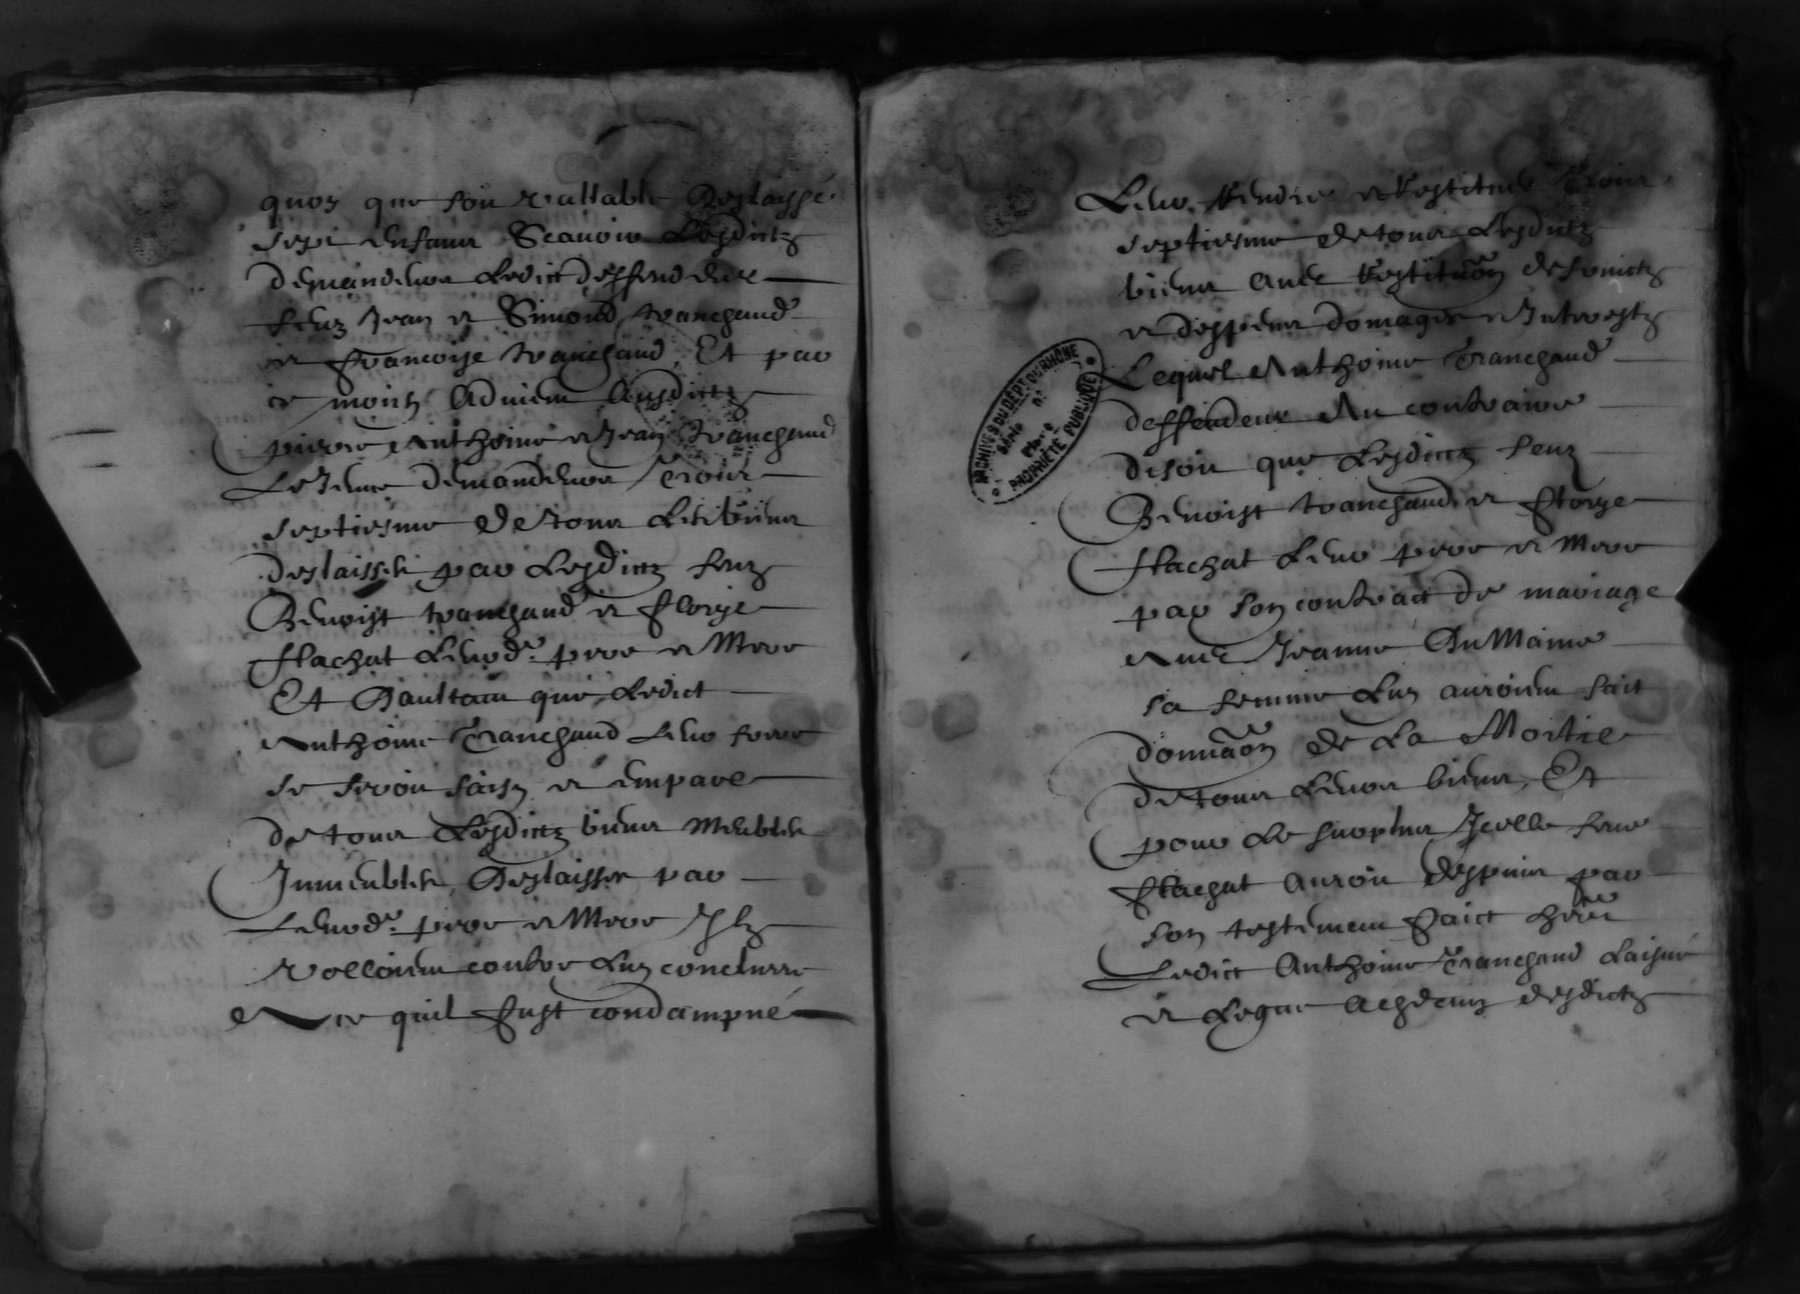 quon que soit vallable deslaissé
sept enfans Scavoir lesdictz
demandeurs ledict deffendeur
feuz Jean et Simond tranchand
et francoise tranchand Et par
ce moien Advient Ausdictz
pierre Anthoine et Jean tranchand
le Jeune demandeurs trois
septiesme de tous les biens
deslaissés par lesdictz feuz
Benoist tranchand et florye
flachat leursd. pere et Mere
Et daultant que ledict
Anthoine tranchand leur frere
se seroit saisy et emparé
de tous lesdictz biens Meubles
Immeubles deslaissés par
leursd. pere et Mere Ilz
volloient contre luy conclurre
A ce quil fust condampné
leur Rendre et Restituer trois
septiesme de tous lesdictz
biens Avec Restituon des fruictz
et despens domages et Interestz
Lequel Anthoine tranchand
deffendeur Au contraire
disoit que lesdictz feuz
Benoist tranchand et florye
flachat leur pere et Mere
par son contract de mariage
Avec Jeanne du Maine
sa femme luy auroient faict
donnaon de la Moitié
de tous leurs biens, Et
pour le surplus Icelle feue
flachat auroit despuis par
son testement faict herer
ledict Anthoine tranchand laisné
et legue Ausdictz
ARCHIVES DU DÉPT. DU RHÔNE
Série
PROPRIÉTÉ PUBLIQUE